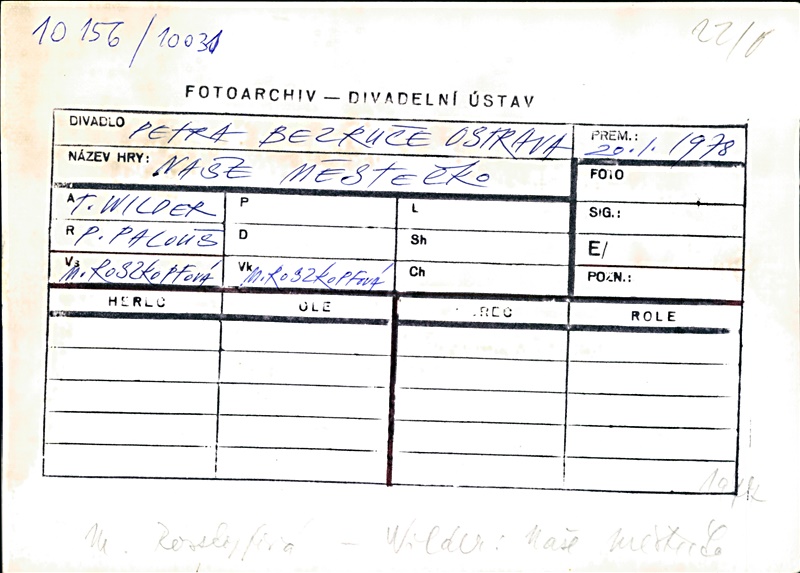 10 156 / 10031
22/
FOTOARCHIV — DIVADELNÍ ÚSTAV
DIVADLO PETRA BEZRUČE OSTRAVA PREM.: 20.1. 1978
NÁZEV HRY: NAŠE MĚSTEČKO FOTO
A T. WILDER P L SIG.:
R P. PALOUŠ D Sh E/
Vs M. ROSZKOPFOVÁ Vk M. ROSZKOPFOVÁ Ch POZN.:
HEREC OLE REC ROLE
M. – Wilder: Naše městečko